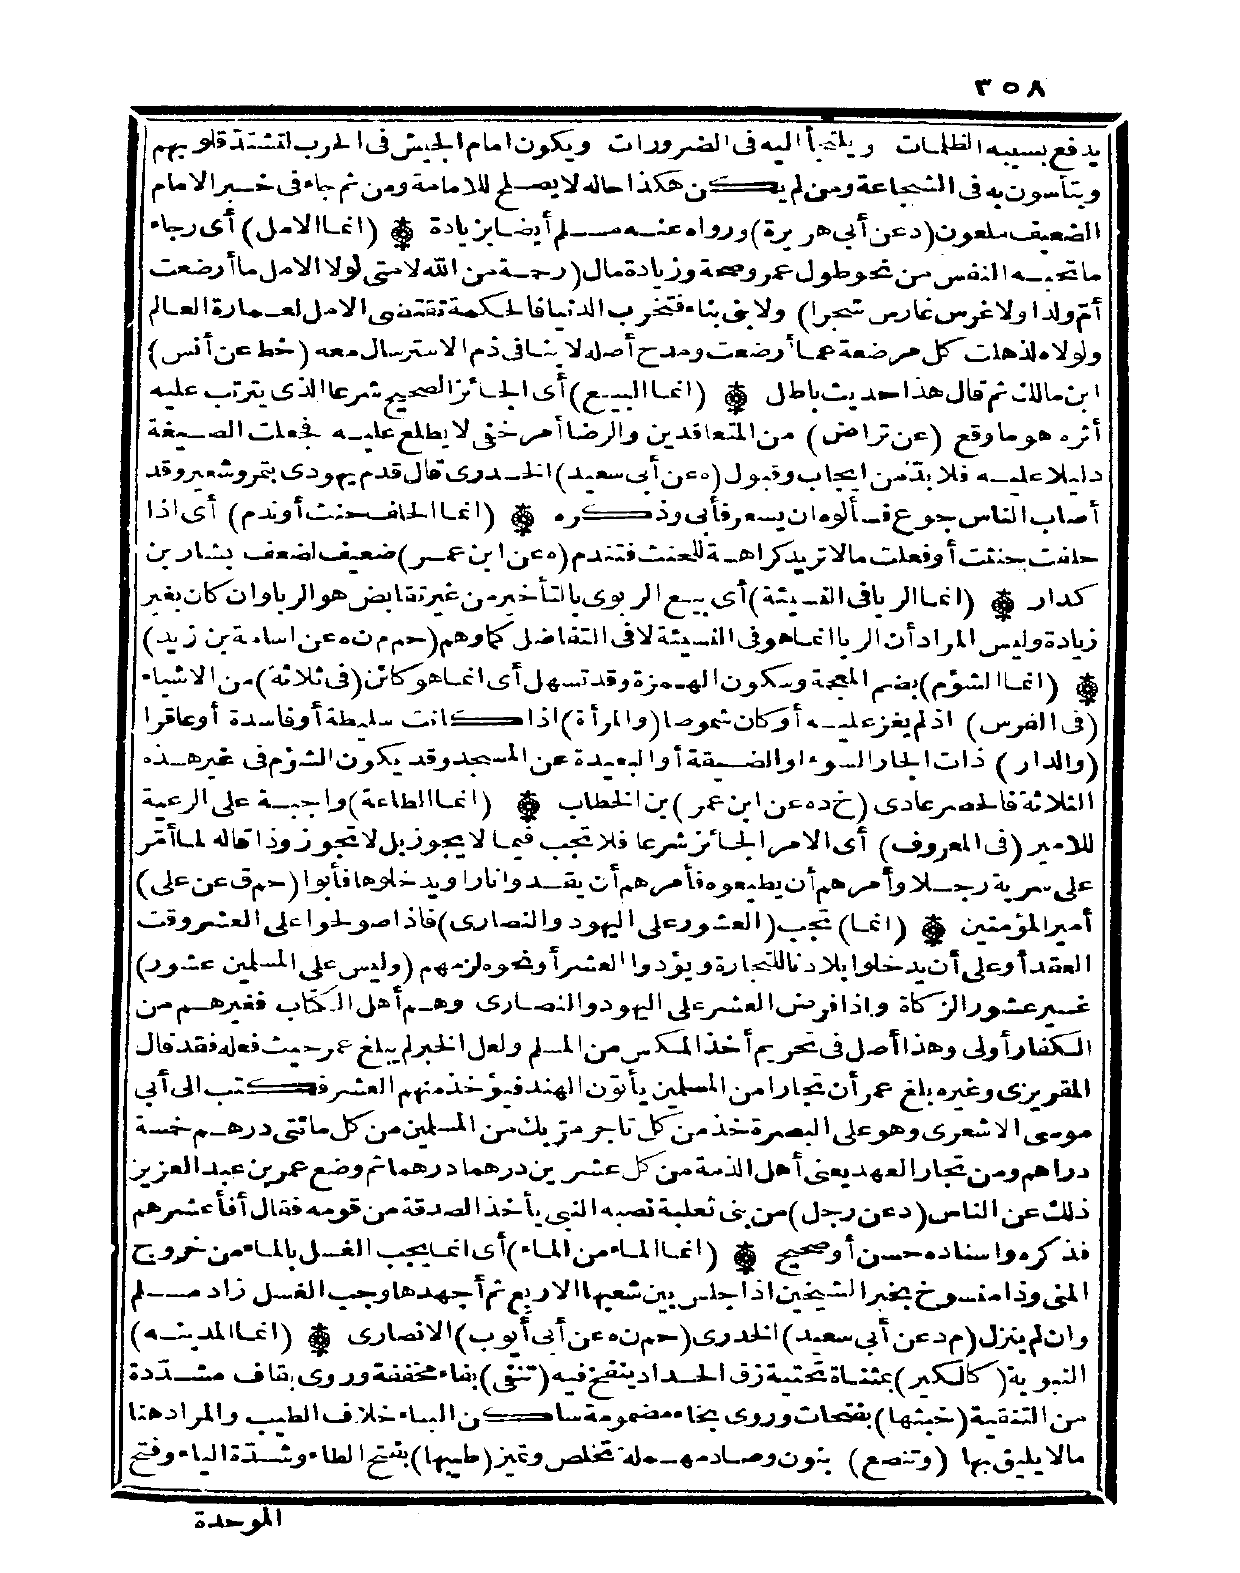 ٣٥٨
يدفع بسببه الظلمات ويلتجأ اليه في الضرورات ويكون امام الجيش في الحرب لتشتد قلوبهم
ويتأسون به في الشجاعة ومن لم يكن هكذا حاله لا يصلح للامامة ومن ثم جاء في خبر الامام
الضعيف ملعون (د عن أبي هريرة) ورواه عنه مسلم أيضا بزيادة ۞ (انما الامل) أي رجاء
ما تحبه النفس من نحو طول عمر وصحة وزيادة مال (رحمة من الله لامتى لولا الامل ما أرضعت
أم ولدا ولا غرس غارس شجرا) ولا بنى بناء فتخرب الدنيا فالحكمة تقتضى الامل لعمارة العالم
ولولاه لذهلت كل مرضعة عما أرضعت ومدح أصله لا ينافى ذم الاسترسال معه (خط عن أنس)
ابن مالك ثم قال هذا حديث باطل ۞ (انما البيع) أي الجائز الصحيح شرعا الذى يترتب عليه
أثره هو ما وقع (عن تراض) من المتعاقدين والرضا أمر خفى لا يطلع عليه فجعلت الصيغة
دليلا عليه فلا بد من ايجاب وقبول (ه عن أبى سعيد) الخدرى قال قدم يهودى بتمر وشعير وقد
أصاب الناس جوع فسألوه ان يسعر فأبى وذكره ۞ (انما الحلف حنث أو ندم) أى اذا
حلفت حنثت أو فعلت مالا تريد كراهة للحنث فتندم (ه عن ابن عمر) ضعيف لضعف بشار بن
كدار ۞ (انما الربا فى النسيئة) أى بيع الربوى بالتأخير من غير تقابض هو الربا وان كان بغير
زيادة وليس المراد أن الربا انما هو فى النسيئة لا فى التفاضل كما وهم (حم م ن ه عن اسامة بن زيد)
۞ (انما الشؤم) بضم المعجمة وسكون الهمزة وقد تسهل أى انما هو كائن (فى ثلاثة) من الاشياء
(فى الفرس) اذ لم يغز عليه أو كان شموصا (والمرأة) اذا كانت سليطة أو فاسدة أو عاقرا
(والدار) ذات الجار السوء او الضيقة أو البعيدة عن المسجد وقد يكون الشؤم فى غير هذه
الثلاثة فالحصر عادى (خ د ه عن ابن عمر) بن الخطاب ۞ (انما الطاعة) واجبة على الرعية
للامير (فى المعروف) أى الامر الجائز شرعا فلا تجب فيما لا يجوز بل لا تجوز وذا قاله لما أمر
على سرية رجلا وأمرهم أن يطيعوه فأمرهم أن يقدوا نارا ويدخلوها فأبوا (حم ق عن على)
أمير المؤمنين ۞ (انما) تجب (العشور على اليهود والنصارى) فاذا صولحوا على العشر وقت
العقد أو على أن يدخلوا بلادنا للتجارة ويؤدوا العشر أو نحوه لزمهم (وليس على المسلمين عشور)
غير عشور الزكاة واذا فرض العشر على اليهود والنصارى وهم أهل الكتاب فغيرهم من
الكفار أولى وهذا أصل فى تحريم أخذ المكس من المسلم ولعل الخبر لم يبلغ عمر حيث فعله فقد قال
المقريزى وغيره بلغ عمر أن تجارا من المسلمين يأتون الهند فيؤخذ منهم العشر فكتب الى أبى
موسى الاشعرى وهو على البصرة خذ من كل تاجر مر بك من المسلمين من كل مائتى درهم خمسة
دراهم ومن تجار العهد يعنى أهل الذمة من كل عشرين درهما درهما ثم وضع عمر بن عبد العزيز
ذلك عن الناس (د عن رجل) من بنى ثعلبة نصبه النبى يأخذ الصدقة من قومه فقال أفأعشرهم
فذكره واسناده حسن أو صحيح ۞ (انما الماء من الماء) أى انما يجب الغسل بالماء من خروج
المنى وذا منسوخ بخبر الشيخين اذا جلس بين شعبها الاربع ثم أجهدها وجب الغسل زاد مسلم
وان لم ينزل (م د عن أبى سعيد) الخدرى (حم ن ه عن أبى أيوب) الانصارى ۞ (انما المدينة)
النبوية (كالكير) بمثناة تحتية زق الحداد ينفخ فيه (تنفى) بفاء مخففة وروى بقاف مشددة
من التنقية (خبثها) بفتحات وروى بخاء مضمومة ساكن الباء خلاف الطيب والمراد هنا
مالا يليق بها (وتنصع) بنون وصاد مهملة تخلص وتميز (طيبها) بفتح الطاء وشدة الياء وفتح
الموحدة